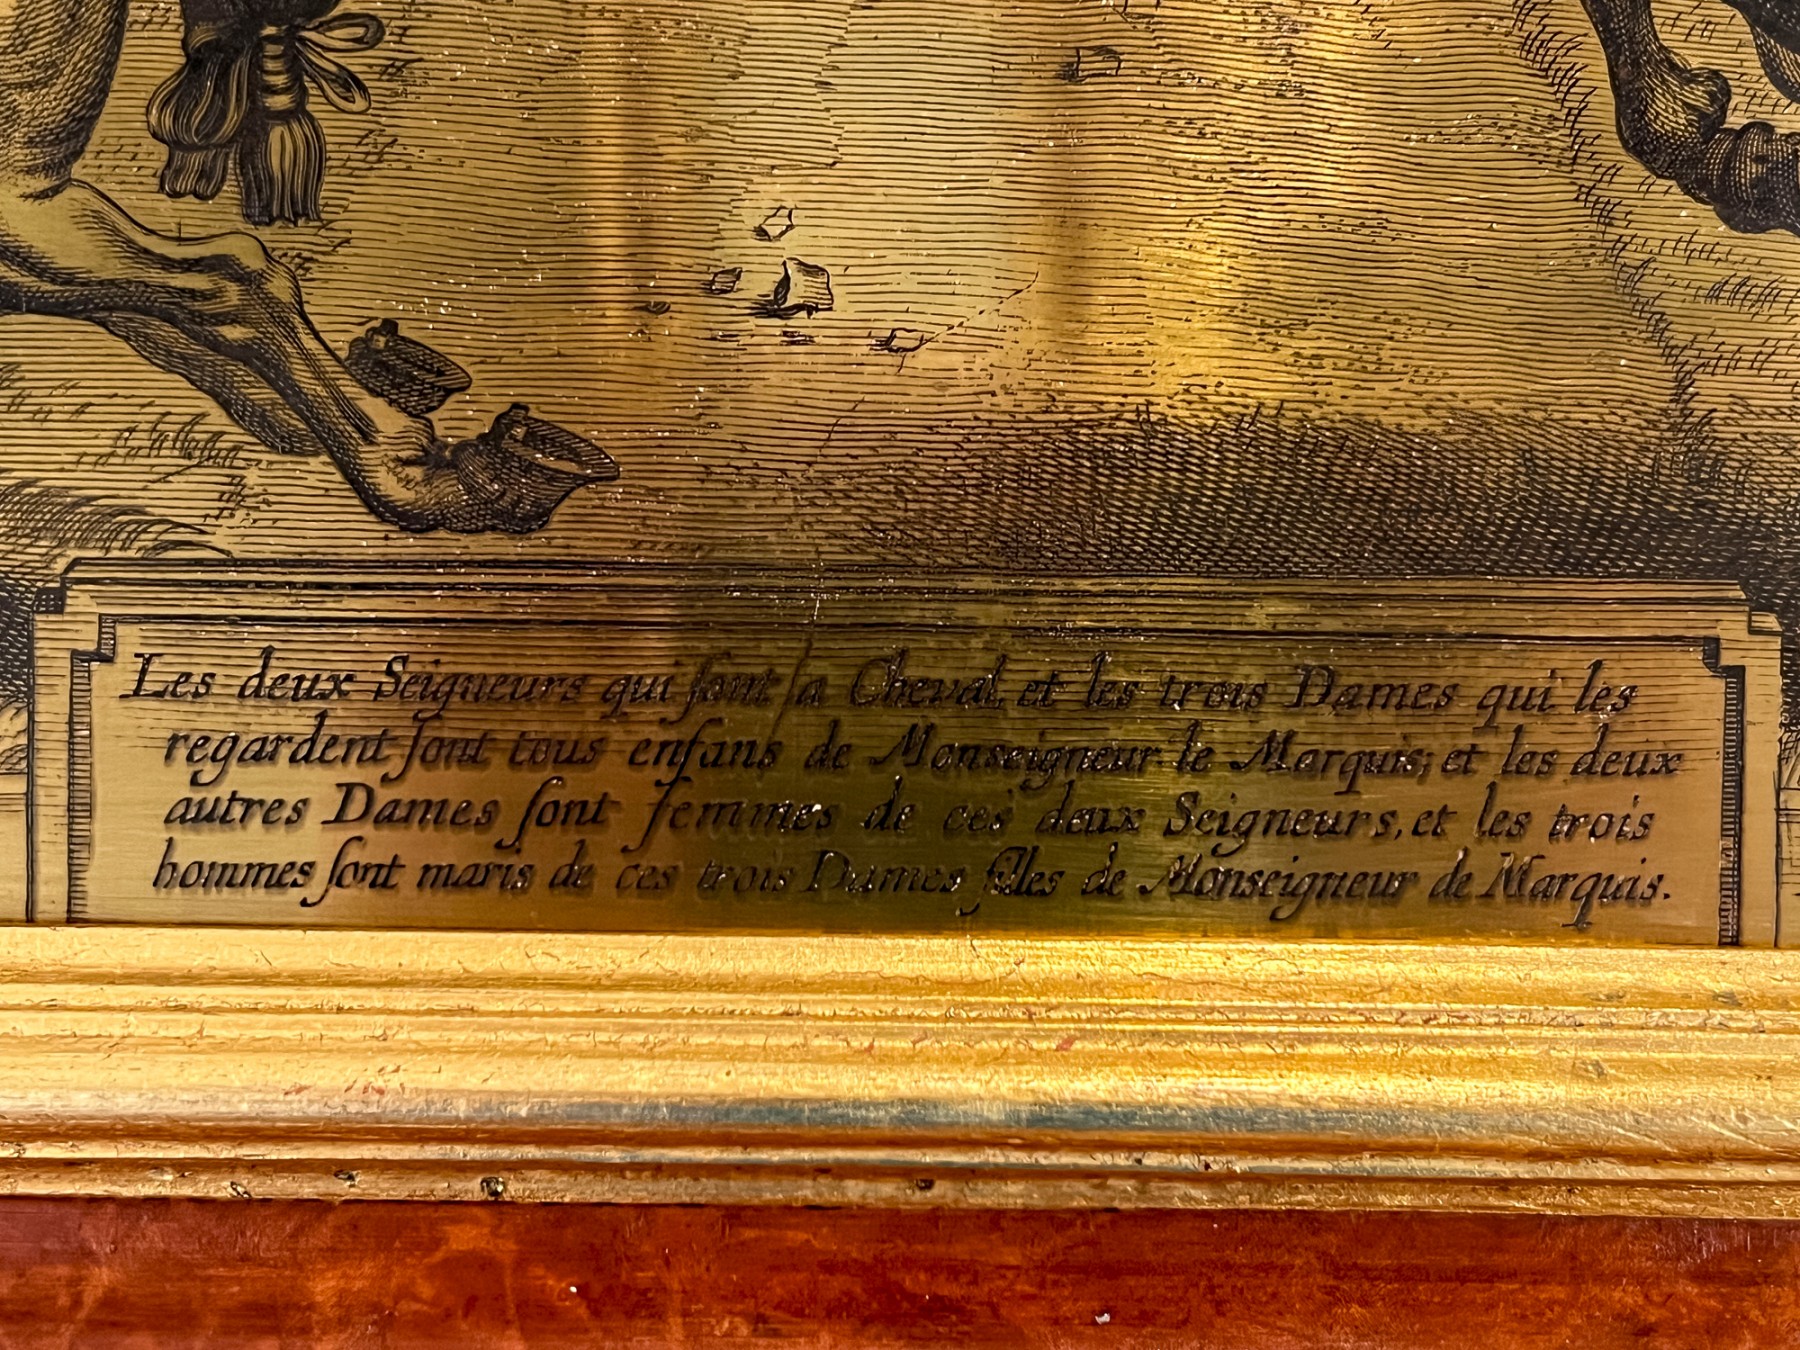 Les deux Seigneurs qui ſont a Cheval, et les trois Dames qui les
regardent ſont tous enfans de Monseigneur le Marquis; et les deux
autres Dames ſont femmes de ces deux Seigneurs, et les trois
hommes ſont maris de ces trois Dames filles de Monseigneur de Marquis.